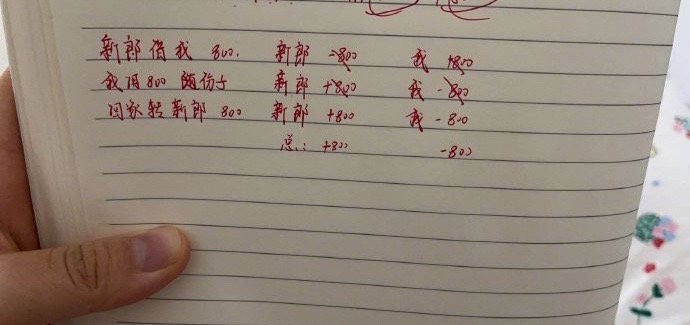 新郎借我 800. 新郎 -800 我 +800
我用800 随份子 新郎 +800 我 -800
回家转新郎 800 新郎 +800 我 -800
总: +800 -800